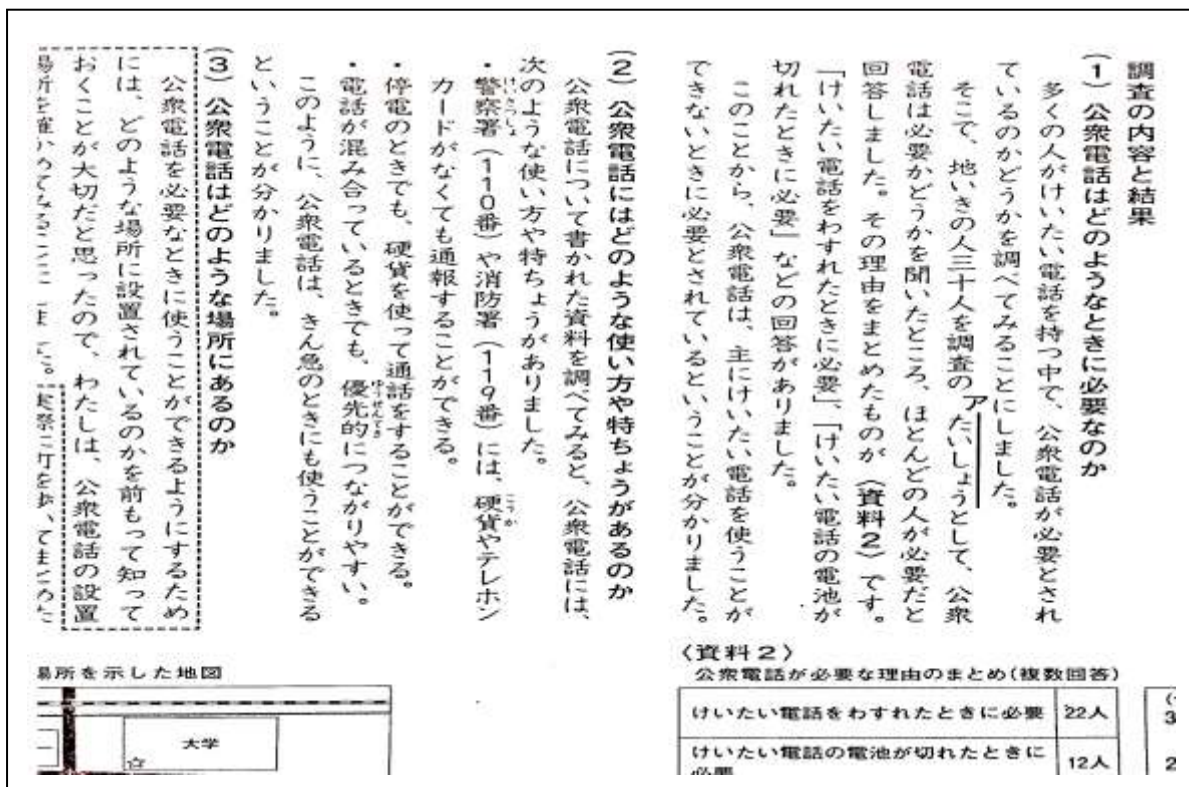 調査の内容と結果
(1) 公衆電話はどのようなときに必要なのか
多くの人がけいたい電話を持つ中で、公衆電話が必要とされ
ているのかどうかを調べてみることにしました。
そこで、地いきの人三十人を調査のたいしょうとして、公衆
ア
電話は必要かどうかを聞いたところ、ほとんどの人が必要だと
回答しました。その理由をまとめたものが〈資料2〉です。
「けいたい電話をわすれたときに必要」、「けいたい電話の電池が
切れたときに必要」などの回答がありました。
このことから、公衆電話は、主にけいたい電話を使うことが
できないときに必要とされているということが分かりました。
(2) 公衆電話にはどのような使い方や特ちょうがあるのか
公衆電話について書かれた資料を調べてみると、公衆電話には、
次のような使い方や特ちょうがありました。
・警察署(110番)や消防署(119番)には、硬貨やテレホン
けいさつしょ
こうか
カードがなくても通報することができる。
・停電のときでも、硬貨を使って通話をすることができる。
・電話が混み合っているときでも、優先的につながりやすい。
ゆうせんてき
このように、公衆電話は、きん急のときにも使うことができる
ということが分かりました。
(3) 公衆電話はどのような場所にあるのか
公衆電話を必要なときに使うことができるようにするため
には、どのような場所に設置されているのかを前もって知って
おくことが大切だと思ったので、わたしは、公衆電話の設置
〈資料2〉
公衆電話が必要な理由のまとめ(複数回答)
けいたい電話をわすれたときに必要 22人
けいたい電話の電池が切れたときに 12人
必要
場所を示した地図
大学
☆